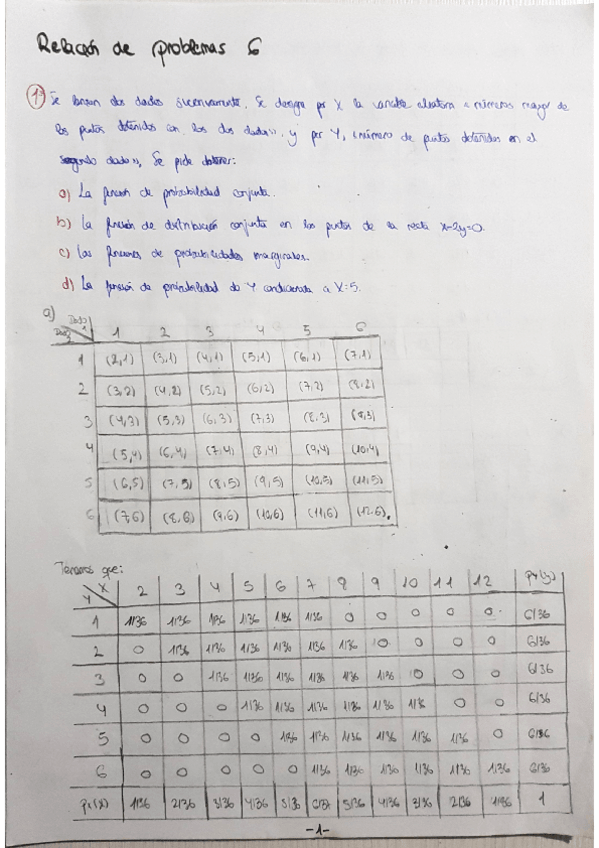 Relación de problemas 6
1º Se lanzan dos dados sucesivamente. Se designa por X la variable aleatoria «números mayor de
los puntos obtenidos con los dos dados», y por Y, «número de puntos obtenidos en el
segundo dado», Se pide obtener:
a) La función de probabilidad conjunta.
b) La función de distribución conjunta en los puntos de la recta x-2y=0.
c) Las funciones de probabilidades marginales.
d) La función de probabilidad de Y condicionada a X=5.
a)
Dado 1 1 2 3 4 5 6
Dado 2
1 (2,1) (3,1) (4,1) (5,1) (6,1) (7,1)
2 (3,2) (4,2) (5,2) (6,2) (7,2) (8,2)
3 (4,3) (5,3) (6,3) (7,3) (8,3) (9,3)
4 (5,4) (6,4) (7,4) (8,4) (9,4) (10,4)
5 (6,5) (7,5) (8,5) (9,5) (10,5) (11,5)
6 (7,6) (8,6) (9,6) (10,6) (11,6) (12,6).
Tenemos que:
Y X 2 3 4 5 6 7 8 9 10 11 12 Pr(y)
1 1/36 1/36 1/36 1/36 1/36 1/36 0 0 0 0 0 6/36
2 0 1/36 1/36 1/36 1/36 1/36 1/36 0 0 0 0 6/36
3 0 0 1/36 1/36 1/36 1/36 1/36 1/36 0 0 0 6/36
4 0 0 0 1/36 1/36 1/36 1/36 1/36 1/36 0 0 6/36
5 0 0 0 0 1/36 1/36 1/36 1/36 1/36 1/36 0 6/36
6 0 0 0 0 0 1/36 1/36 1/36 1/36 1/36 1/36 6/36
Pr(X) 1/36 2/36 3/36 4/36 5/36 6/36 5/36 4/36 3/36 2/36 1/36 1
-1-